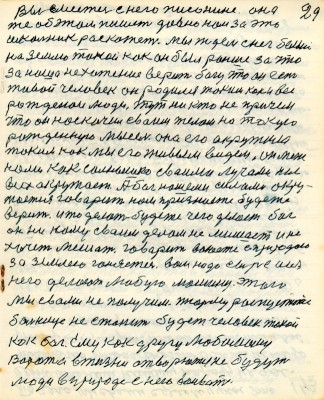 29
Вы вместе с него писонине. она
тебе об этом пишет давно нам за это
школьник раскажет. Мы ждем снег белый
на Землю такой как он был раньше за то
за наше нехотение верить богу что он есть
живой человек он родился таким как и все
рожденые люди. Тут никто не причем
что он наскочил своим телом на такую
рожденную мысль она его окружила
таким как мы его живым видем, он между
нами как солнышко своими лучами нас
всех окружает. А бог нашими силами окру-
жается говорит нам признаете будете
верить. и то делать будете чего делает бог
он ни кому своим делом не мешает и не
хочет мешать говорит вы с природою
за Землею гоняется. вам надо сырье из
него делают любую машину. этого
мы своими не получим тюрьму распустите
больнице не станет будет человек такой
как бог. ему как другу любимому
Ворота в жизни отворяются будут
люди в природе с него